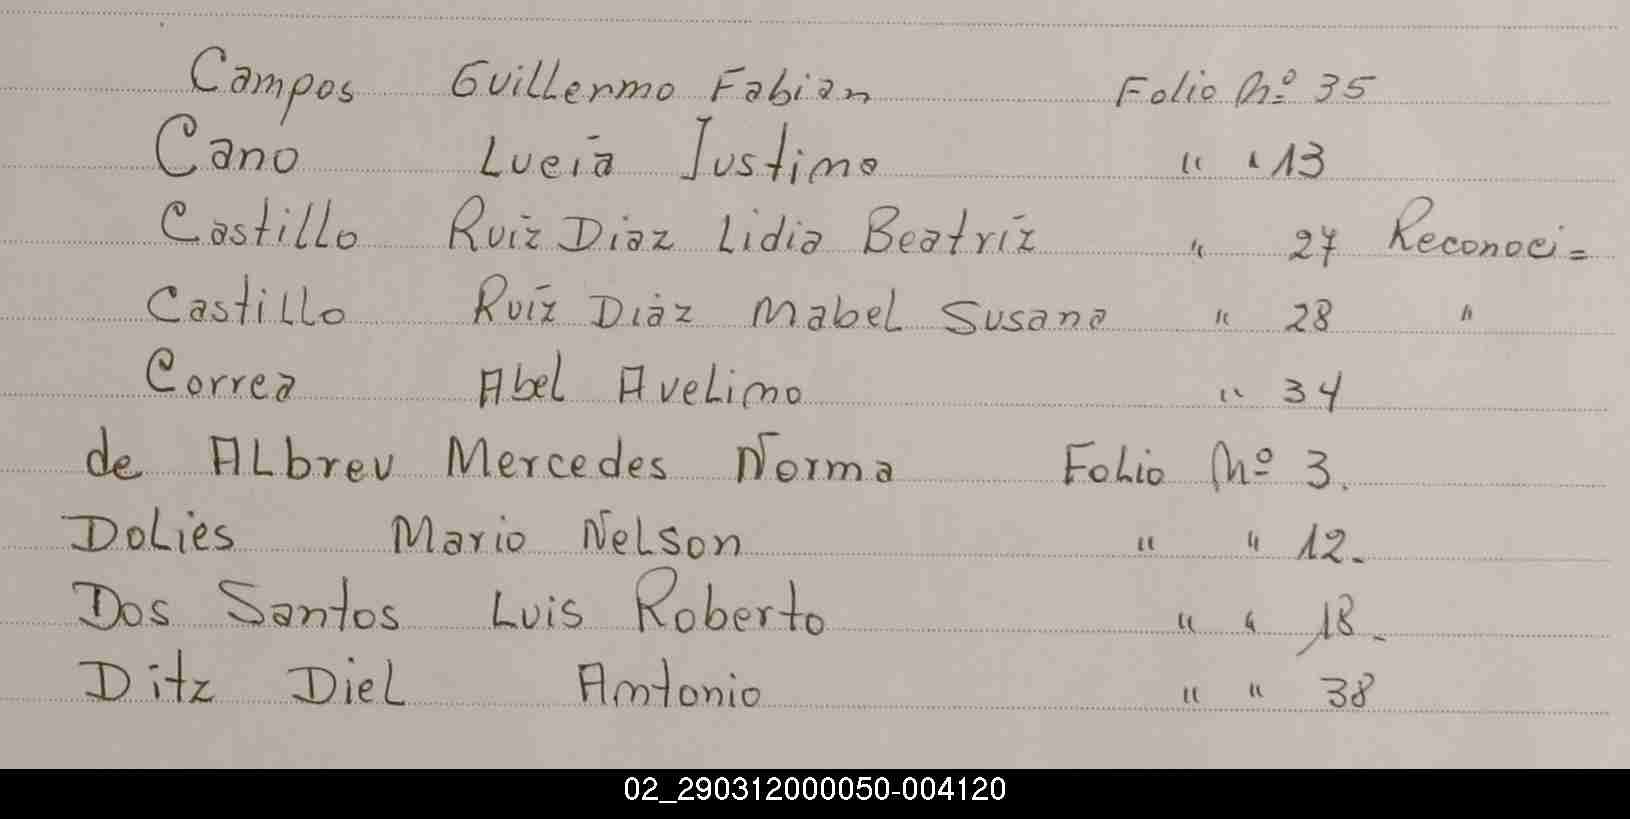 Campos Guillermo Fabian Folio Nº 35
Cano Lucia Justimo " " 13
Castillo Ruiz Diaz Lidia Beatriz " 27 Reconoci=
Castillo Ruiz Diaz Mabel Susana " 28 "
Correa Abel Avelimo " 34
de ALbreu Mercedes Norma Folio Nº 3.
DoLies Mario NeLson " " 12.
Dos Santos Luis Roberto " " 18.
Ditz DieL Antonio " " 38
02_290312000050-004120